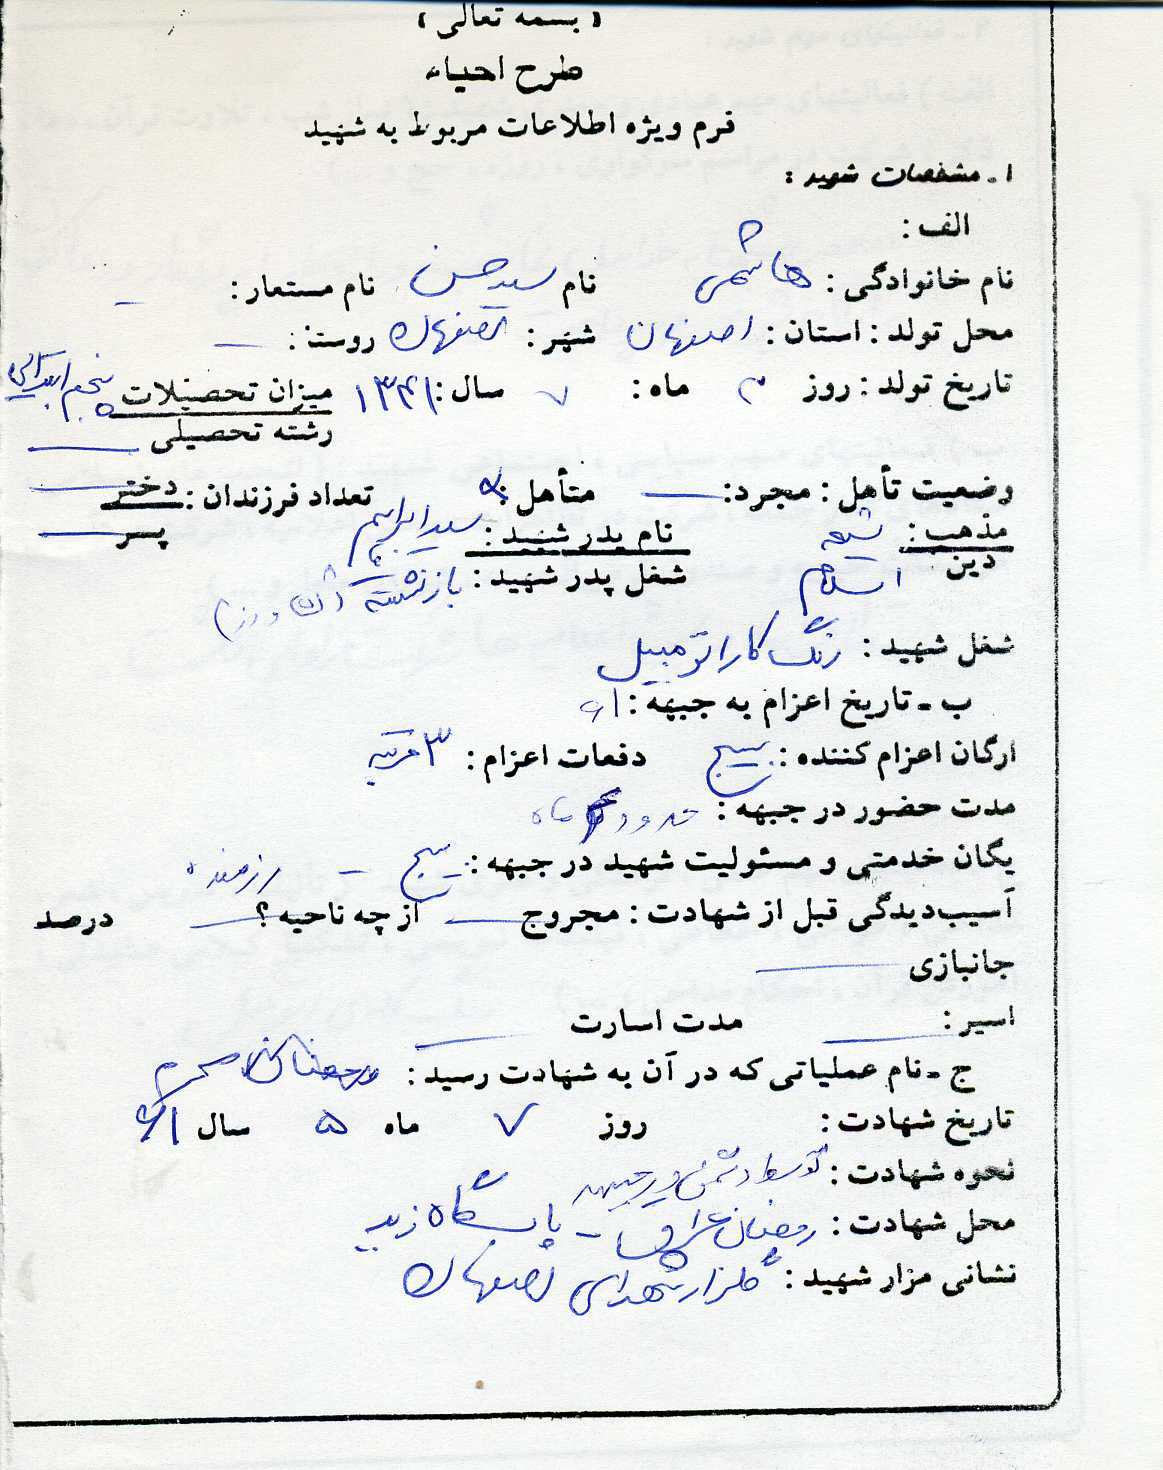 ( بسمه تعالی )
طرح احیاء
فرم ویژه اطلاعات مربوط به شهید
۱ - مشخصات شهید :
الف :
نام خانوادگی : هاشمی نام سید حسن نام مستعار : -
محل تولد : استان : اصفهان شهر : اصفهان روستا : -
تاریخ تولد : روز ۳ ماه : ۷ سال : ۱۳۴۱ میزان تحصیلات پنجم ابتدائی
رشته تحصیلی -
وضعیت تأهل : مجرد : - متأهل : تعداد فرزندان : دختر -
مذهب : شیعه نام پدر شهید : سید ابراهیم پسر -
دین اسلام شغل پدر شهید : بازنشسته (کشاورز)
شغل شهید : رنگ کار اتومبیل
ب - تاریخ اعزام به جبهه : ۶۱
ارگان اعزام کننده : بسیج دفعات اعزام : ۳ مرتبه
مدت حضور در جبهه : حدود ماه
یگان خدمتی و مسئولیت شهید در جبهه : بسیج - رزمنده
آسیب‌دیدگی قبل از شهادت : مجروح - از چه ناحیه ؟ - درصد
جانبازی -
اسیر : - مدت اسارت -
ج - نام عملیاتی که در آن به شهادت رسید : محرم
تاریخ شهادت : روز ۷ ماه ۵ سال ۶۱
نحوه شهادت : توسط دشمن در جبهه
محل شهادت : رمضان عراق - پاسگاه زید
نشانی مزار شهید : گلزار شهدای اصفهان